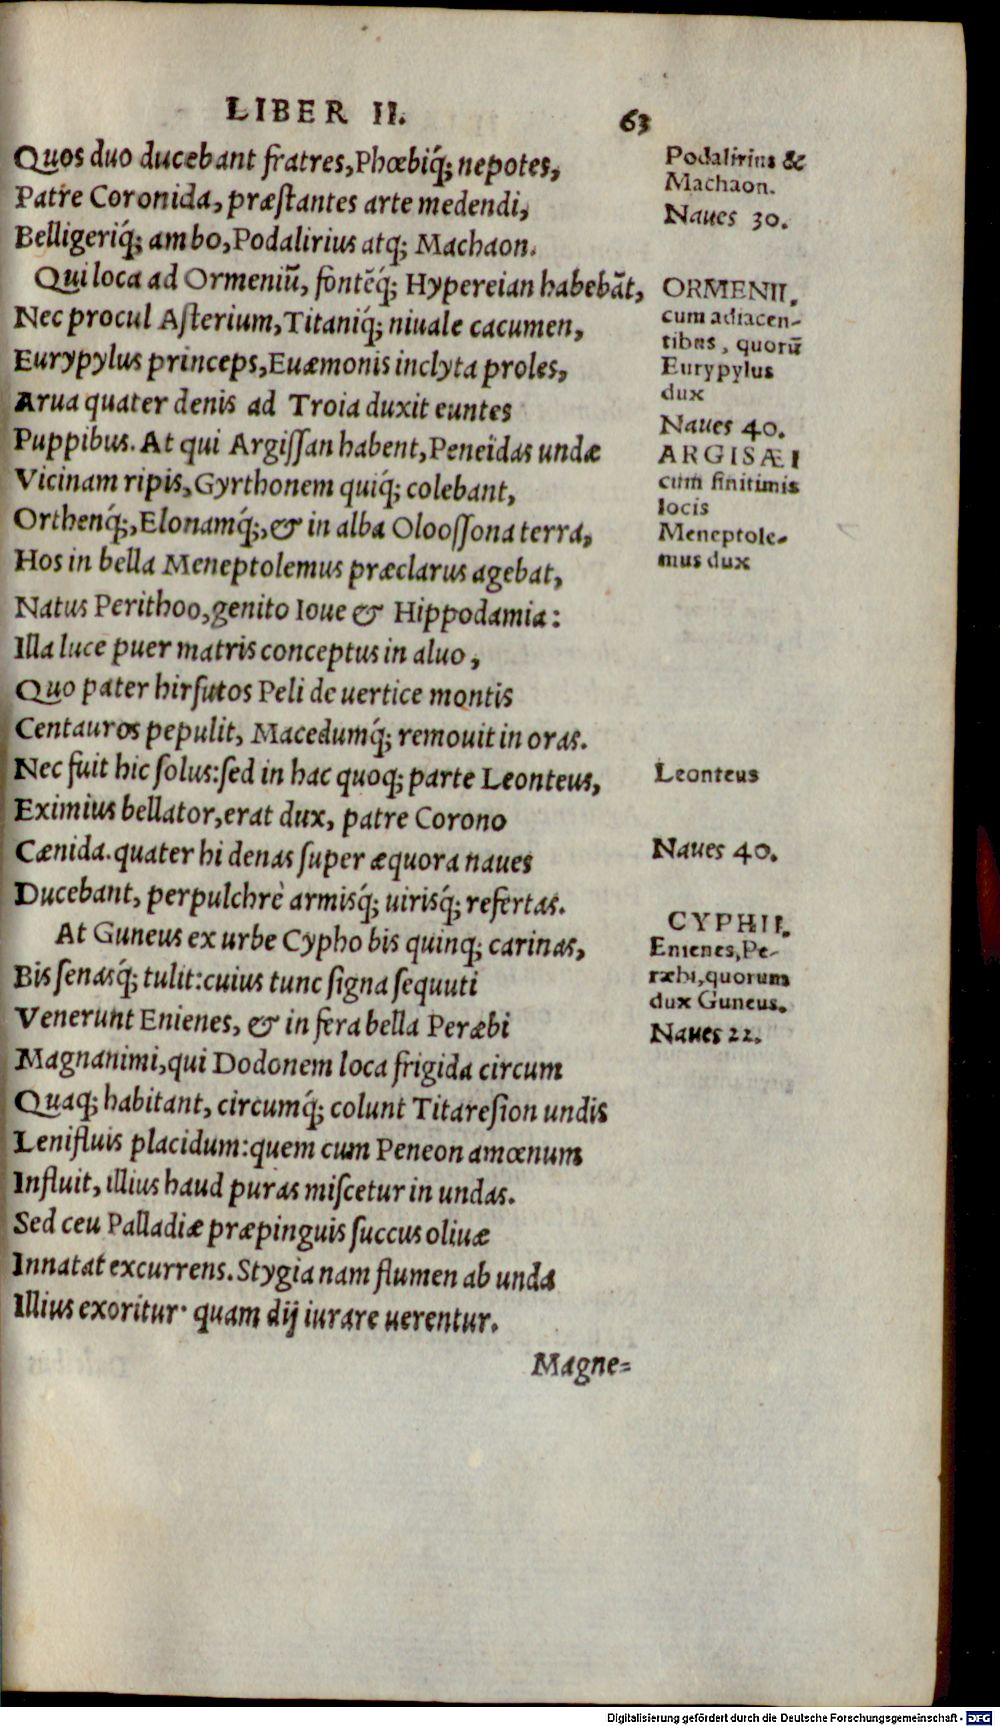 LIBER II. 63
Quos duo ducebant fratres, Phœbiq́; nepotes,
Patre Coronida, præſtantes arte medendi,
Belligeriq́; ambo, Podalirius atq; Machaon.
Qui loca ad Ormeniũ, fontẽq́; Hypereian habebãt,
Nec procul Aſterium, Titaniq́; niuale cacumen,
Eurypylus princeps, Euæmonis inclyta proles,
Arua quater denis ad Troia duxit euntes
Puppibus. At qui Argiſſan habent, Peneïdas undæ
Vicinam ripis, Gyrthonem quiq́; colebant,
Orthenq́;, Elonamq́;, & in alba Olooſſona terra,
Hos in bella Meneptolemus præclarus agebat,
Natus Perithoo, genito Ioue & Hippodamia:
Illa luce puer matris conceptus in aluo,
Quo pater hirſutos Peli de uertice montis
Centauros pepulit, Macedumq́; remouit in oras.
Nec fuit hic ſolus: ſed in hac quoq; parte Leonteus,
Eximius bellator, erat dux, patre Corono
Cænida. quater hi denas ſuper æquora naues
Ducebant, perpulchrè armisq́; uirisq́; refertas.
At Guneus ex urbe Cypho bis quinq; carinas,
Bis ſenasq́; tulit: cuius tunc ſigna ſequuti
Venerunt Enienes, & in fera bella Peræbi
Magnanimi, qui Dodonem loca frigida circum
Quaq; habitant, circumq́; colunt Titareſion undis
Lenifluis placidum: quem cum Peneon amœnum
Influit, illius haud puras miſcetur in undas.
Sed ceu Palladiæ præpinguis ſuccus oliuæ
Innatat excurrens. Stygia nam flumen ab unda
Illius exoritur· quam dij iurare uerentur.
Magne=
Podalirius &
Machaon.
Naues 30.
ORMENII.
cum adiacen-
tibus, quorũ
Eurypylus
dux
Naues 40.
ARGISÆI
cum finitimis
locis
Meneptole-
mus dux
Leonteus
Naues 40.
CYPHII.
Enienes, Pe-
ræbi, quorum
dux Guneus.
Naues 22.
Digitalisierung gefördert durch die Deutsche Forschungsgemeinschaft - DFG